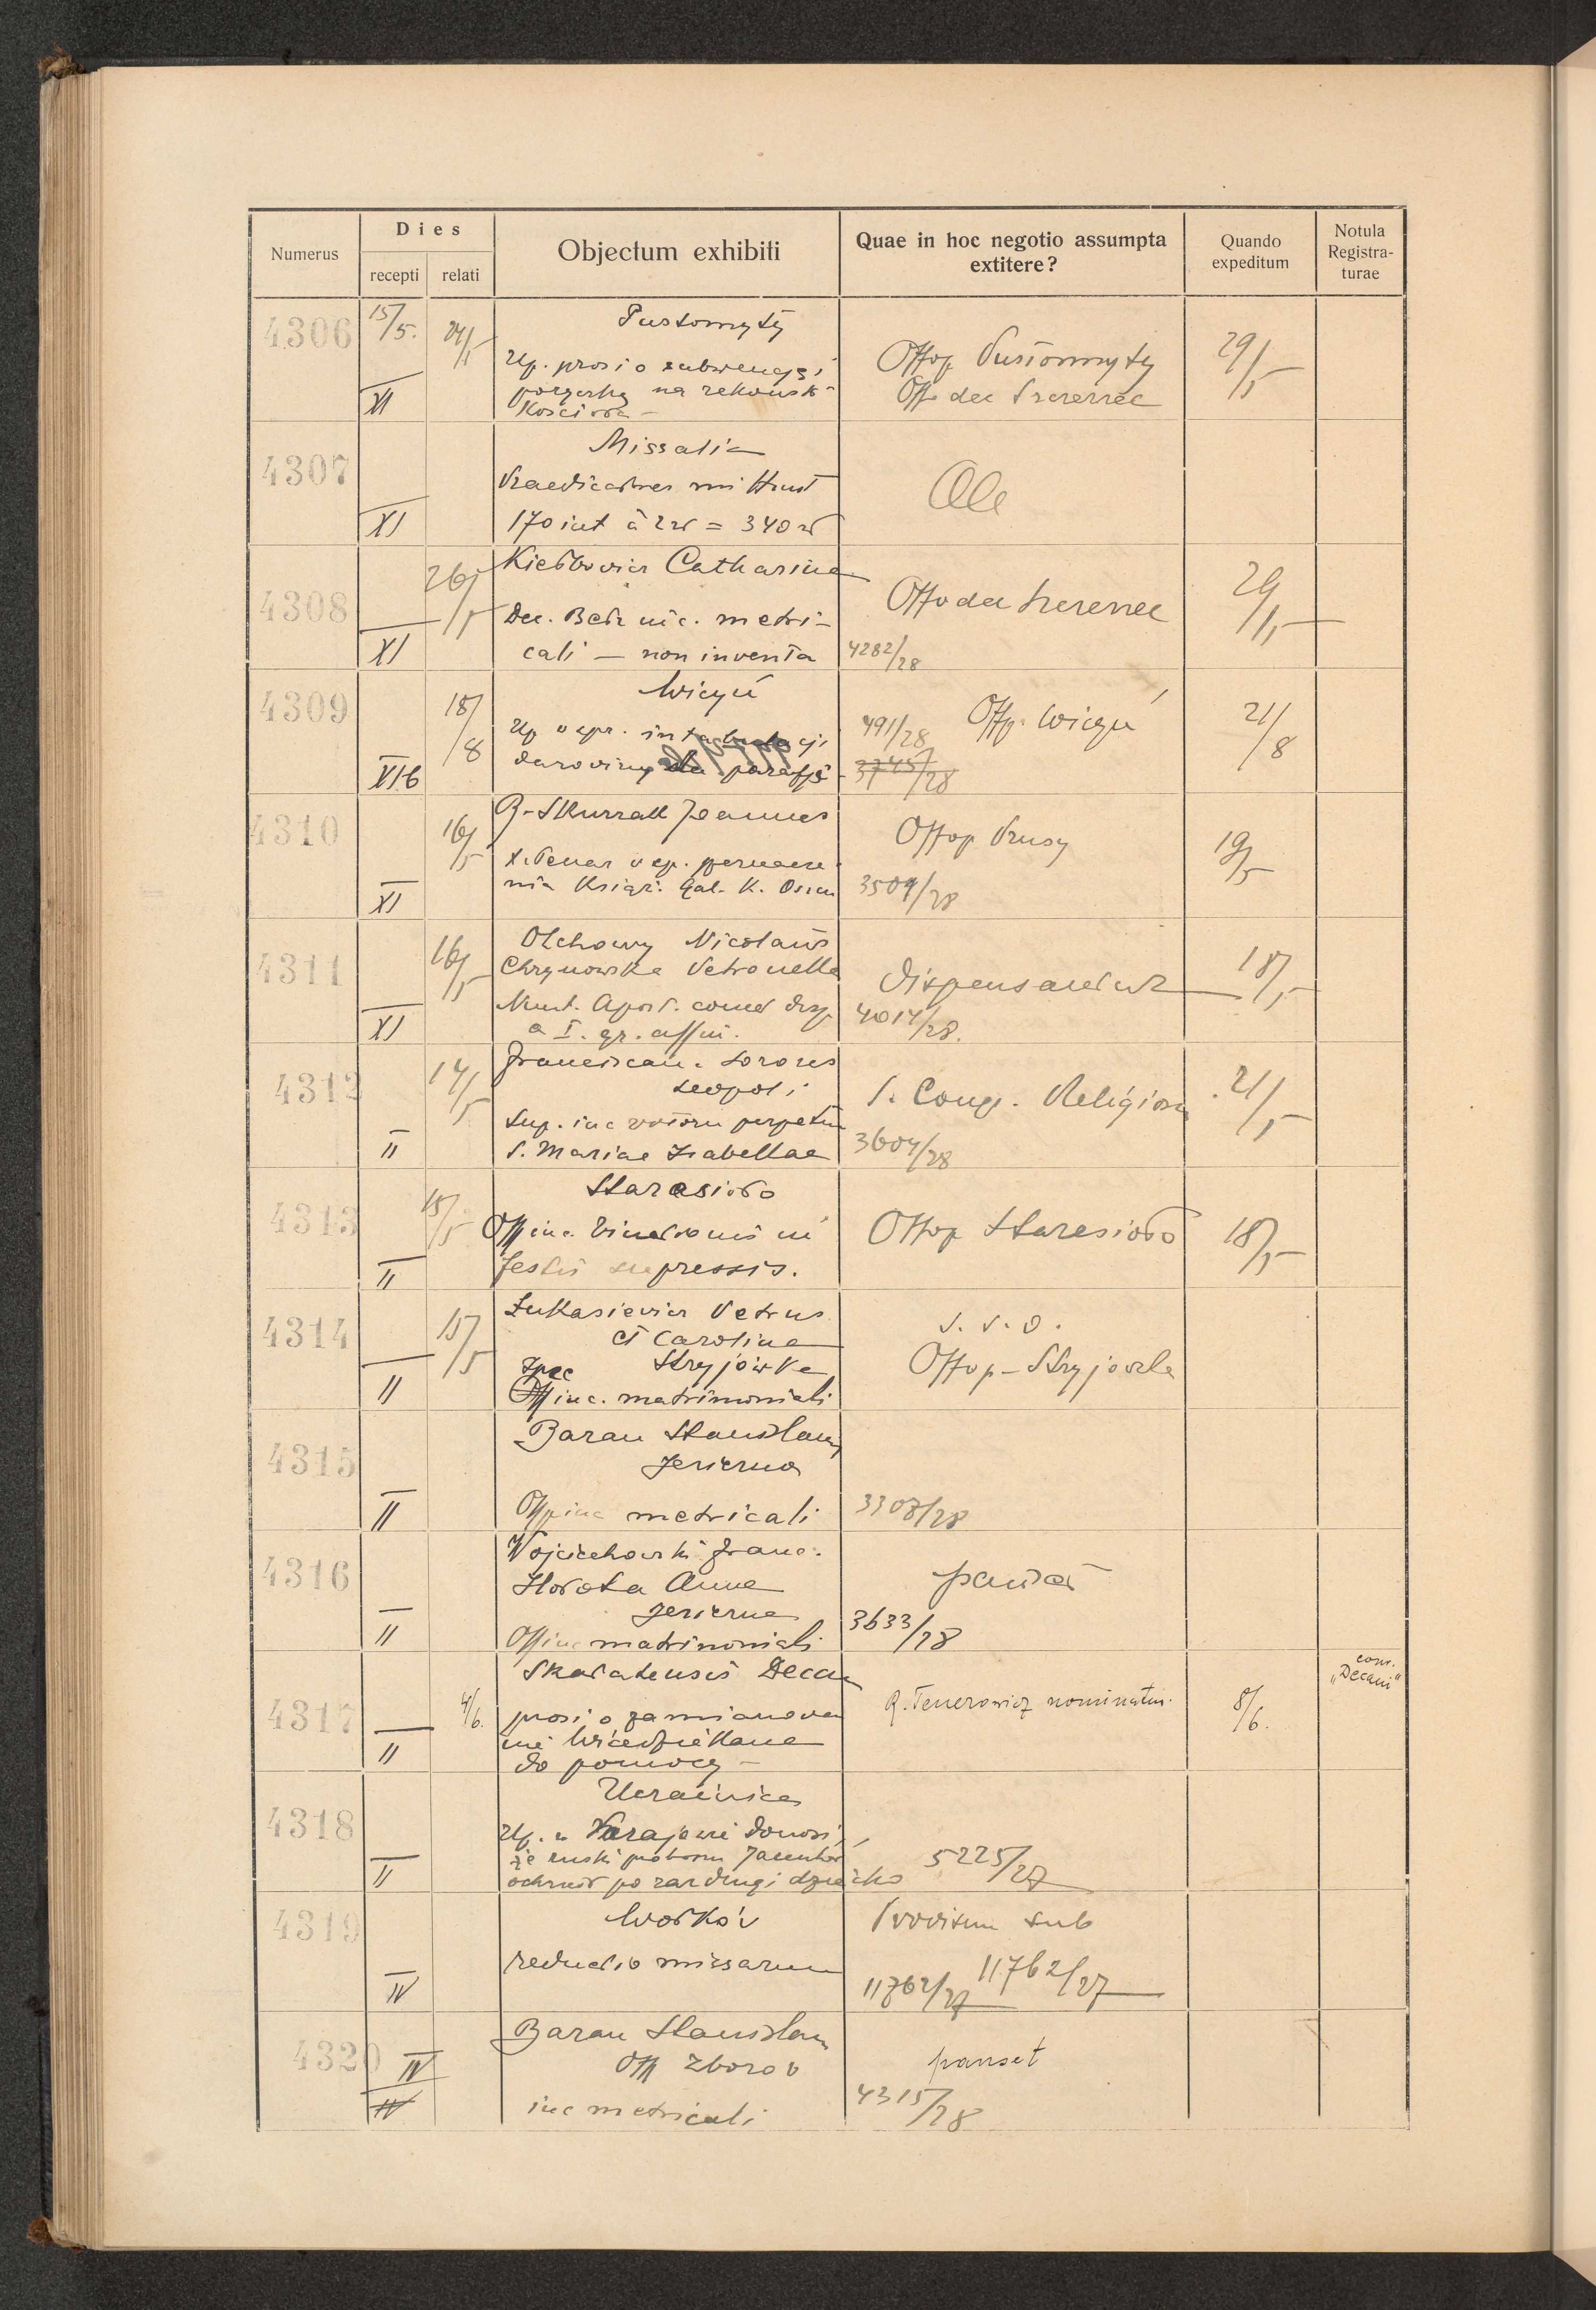 Numerus
Dies
recepti relati
Objectum exhibiti
Quae in hoc negotio assumpta extitere?
Quando expeditum
Notula Registra-turae
4306 15/5. 24/5 Pustomyty
Up. prosi o subwencję i
pożyczkę na rekonstr.
kościoła –
XI
Offop Pustomyty
Offo dec Szczerzec
29/5
4307 Missalia
Praedicatores mittunt
170 int à 2 zł = 340 zł
XI
Ole
4308 26/5 Kiełbowicz Catharina
Dec. Bełz inc. metri-
cali – non inventa
XI
Offo dec Szczerzec
4282/28
29/5
4309 18/8 Wicyń
Up w spr. intabulacji
darowizny dla parafji
XI b
491/28 Offp. Wicyń
3745/28
21/8
4310 16/5 R. Skurzak Joannes
XI
Offop Prusy
3509/28
19/5
4311 16/5 Olchowy Nicolaus
Chrzanowska Petronella
Nunt. Apost. comm disp
a I. gr. affin.
XI
Dispensandi
4014/28.
18/5
4312 14/5 Franciscan. Sorores
Leopoli
Sup. inc votoru perpetuu
S. Mariae Izabellae
II
S. Cong. Religiosu
3604/28
21/5
4313 15/5 Staresioło
Offp inc. binationis in
festis supressis.
II
Offop Staresioło
18/5
4314 15/5 Łukasiewicz Petrus
et Carolina
Stryjówka
Offp inc. matrimoniali
II
S. S. O.
Offop – Stryjówka
4315 Baran Stanislaus
Jezierna
Offp inc metricali
II
3308/28
4316 Wojciechowski Franc.
Hołota Anna
Jezierna
Offp inc matrimoniali
II
pauset
3633/28
4317 4/6. Skałatensis Decan
prosi o zamianowa
nie Wicedziekana
do pomocy –
II
R. Tenerowicz nominatur.
8/6.
com.
"Decani"
4318 Ucrainica
Up. w Narajowie donosi,
że ruski proboszcz
ochrzcił po raz drugi dziecko
II
5225/27
4319 Wołków
reductio missarum
IV
Provisum sub
11762/27 11762/27
4320 Baran Stanislaus
Offp Zborów
inc metricali
IV
IV
pauset
4315/28